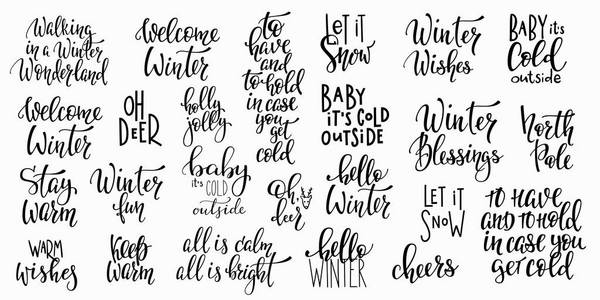 Walking
in a Winter
Wonderland
Welcome
Winter
to
have
and
to hold
in case
you
get
cold
Let it
Snow
Winter
Wishes
BABY it's
Cold
outside
Welcome
Winter
OH
DEER
holly
jolly
BABY
IT'S COLD
OUTSIDE
Winter
Blessings
North
Pole
Stay
Warm
Winter
fun
baby
it's COLD
outside
Oh,
deer
hello
Winter
LET IT
SNOW
TO HAVE
AND TO HOLD
in case you
get cold
WARM
wishes
Keep
warm
all is calm
all is bright
hello
WINTER
cheers